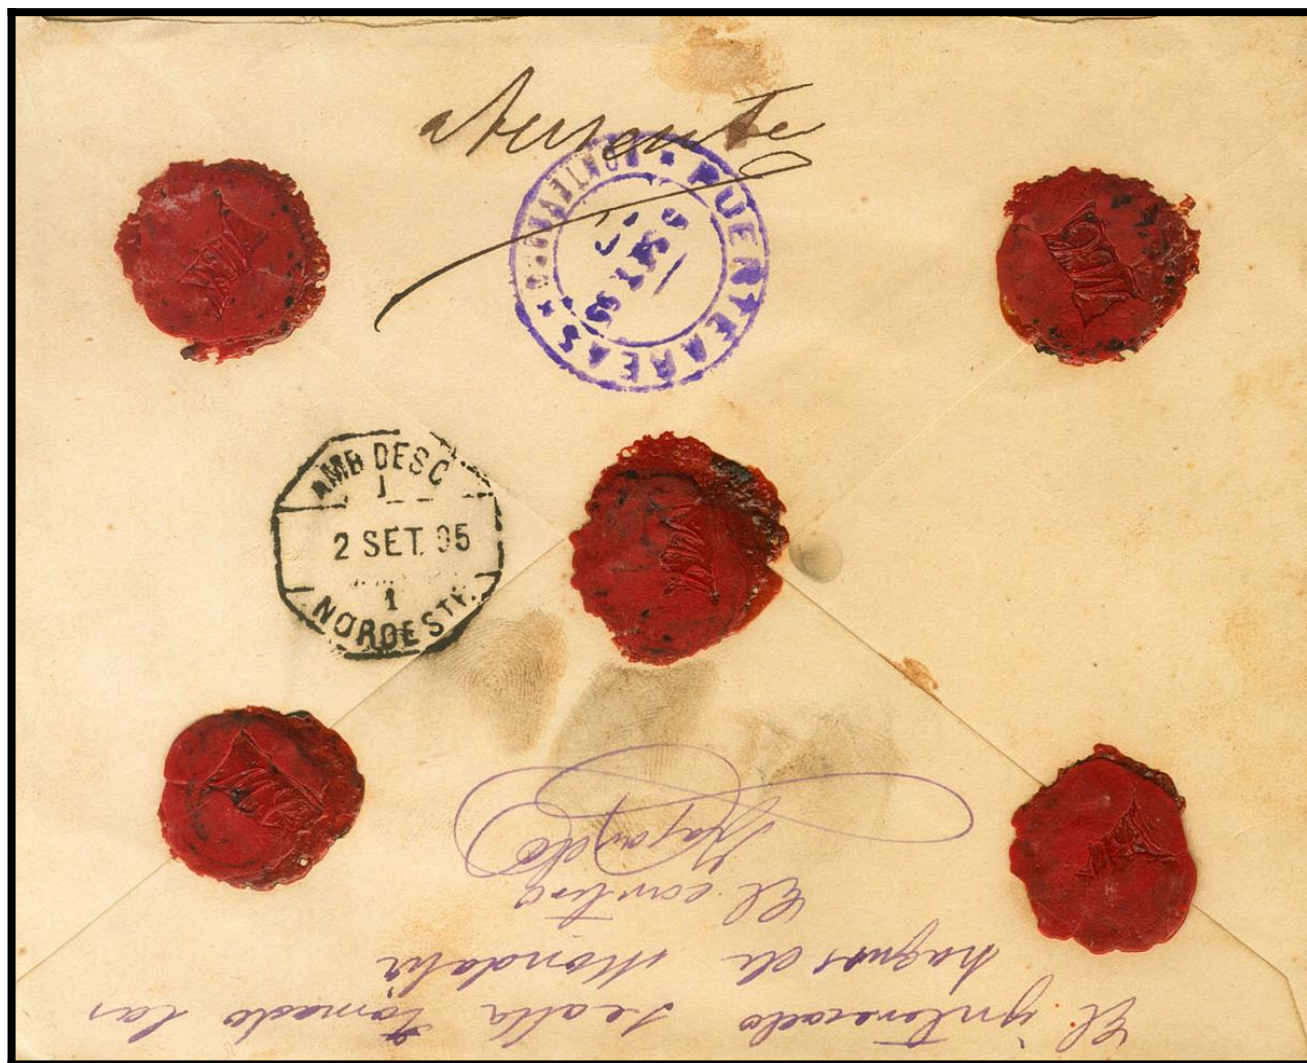 Ausente
PUENTEAREAS * PONTEVEDRA *
SET 95
AMB DESC
1
2 SET. 95
1
NOROESTE
El ynteresado sealla tomado las
haguas de Mondariz
El cartero